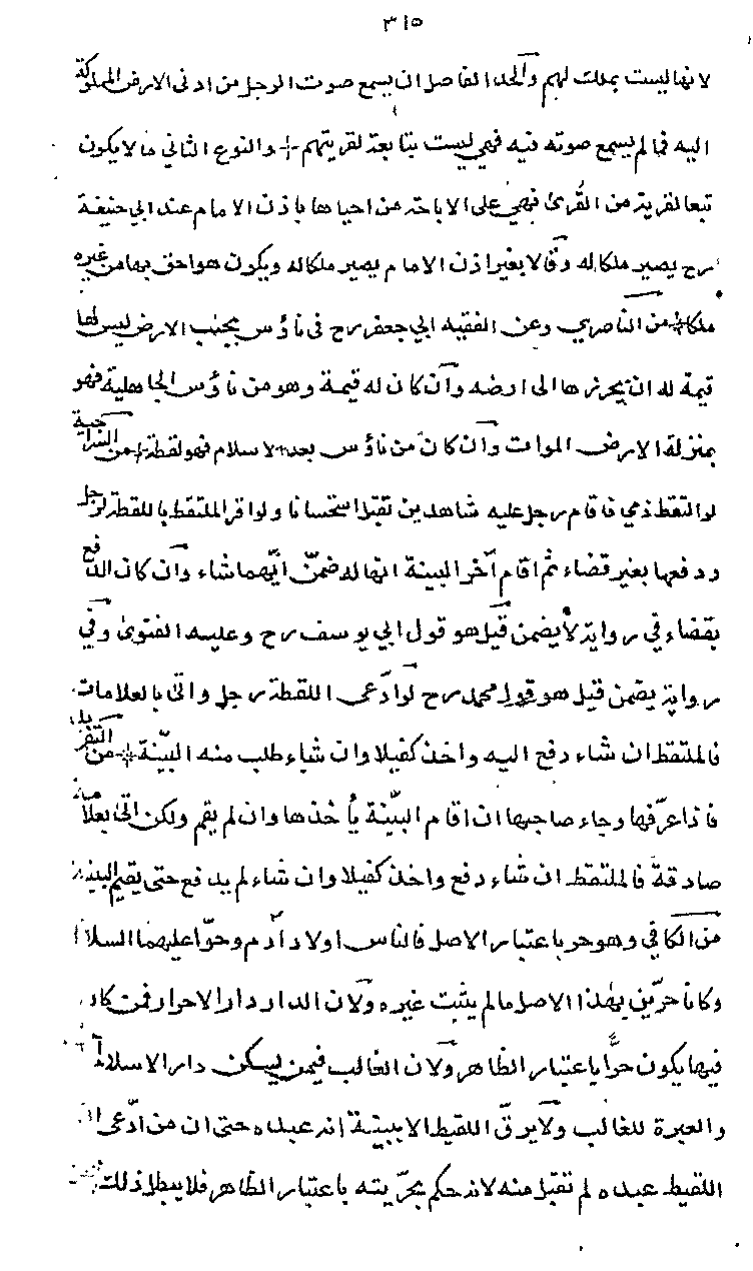 ٣١٥
لانها ليست بملك لهم والحد الفاصل ان يسمع صوت الرجل من ادنى الارض المملوكة
اليه فما لم يسمع صوته فيه فهي ليست بتابعة لقريتهم والنوع الثاني ما لا يكون
تبعا لقرية من القرى فهي على الاباحة من احياها باذن الامام عند ابي حنيفة
رح يصير ملكا له وقالا بغير اذن الامام يصير ملكا له ويكون هو احق بها من غيره
ملكا من الناصري وعن الفقيه ابي جعفر رح في ناؤس بجنب الارض ليس لها
قيمة له ان يحرزها الى ارضه وان كان له قيمة وهو من ناؤس الجاهلية فهو
بمنزلة الارض الموات وان كان من ناؤس بعد الاسلام فهو لقطة من السراجية
لو التقط ذمي فاقام رجل عليه شاهدين تقبل استحسانا ولو اقر الملتقط باللقطة لرجل
ودفعها بغير قضاء ثم اقام آخر البينة انها له ضمن ايّهما شاء وان كان الدفع
بقضاء في رواية لا يضمن قيل هو قول ابي يوسف رح وعليه الفتوى وفي
رواية يضمن قيل هو قول محمد رح لو ادّعى اللقطة رجل واتى بالعلامات
فالملتقط ان شاء دفع اليه واخذ كفيلا وان شاء طلب منه البيّنة من التفريد
فاذا عرّفها وجاء صاحبها ان اقام البيّنة يأخذها وان لم يقم ولكن اتى بعلامة
صادقة فالملتقط ان شاء دفع واخذ كفيلا وان شاء لم يدفع حتى يقيم البينة
من الكافي وهو حر باعتبار الاصل فالناس اولاد آدم وحوّا عليهما السلام
وكانا حرّين بهذا الاصل ما لم يثبت غيره ولان الدار دار الاحرار فمن كان
فيها يكون حرًّا باعتبار الظاهر ولان الغالب فيمن يسكن دار الاسلام
والعبرة للغالب ولا يرقّ اللقيط الا ببينة انه عبده حتى ان من ادّعى ان
اللقيط عبده لم تقبل منه لانه حكم بحرّيته باعتبار الظاهر فلا يبطل ذلك